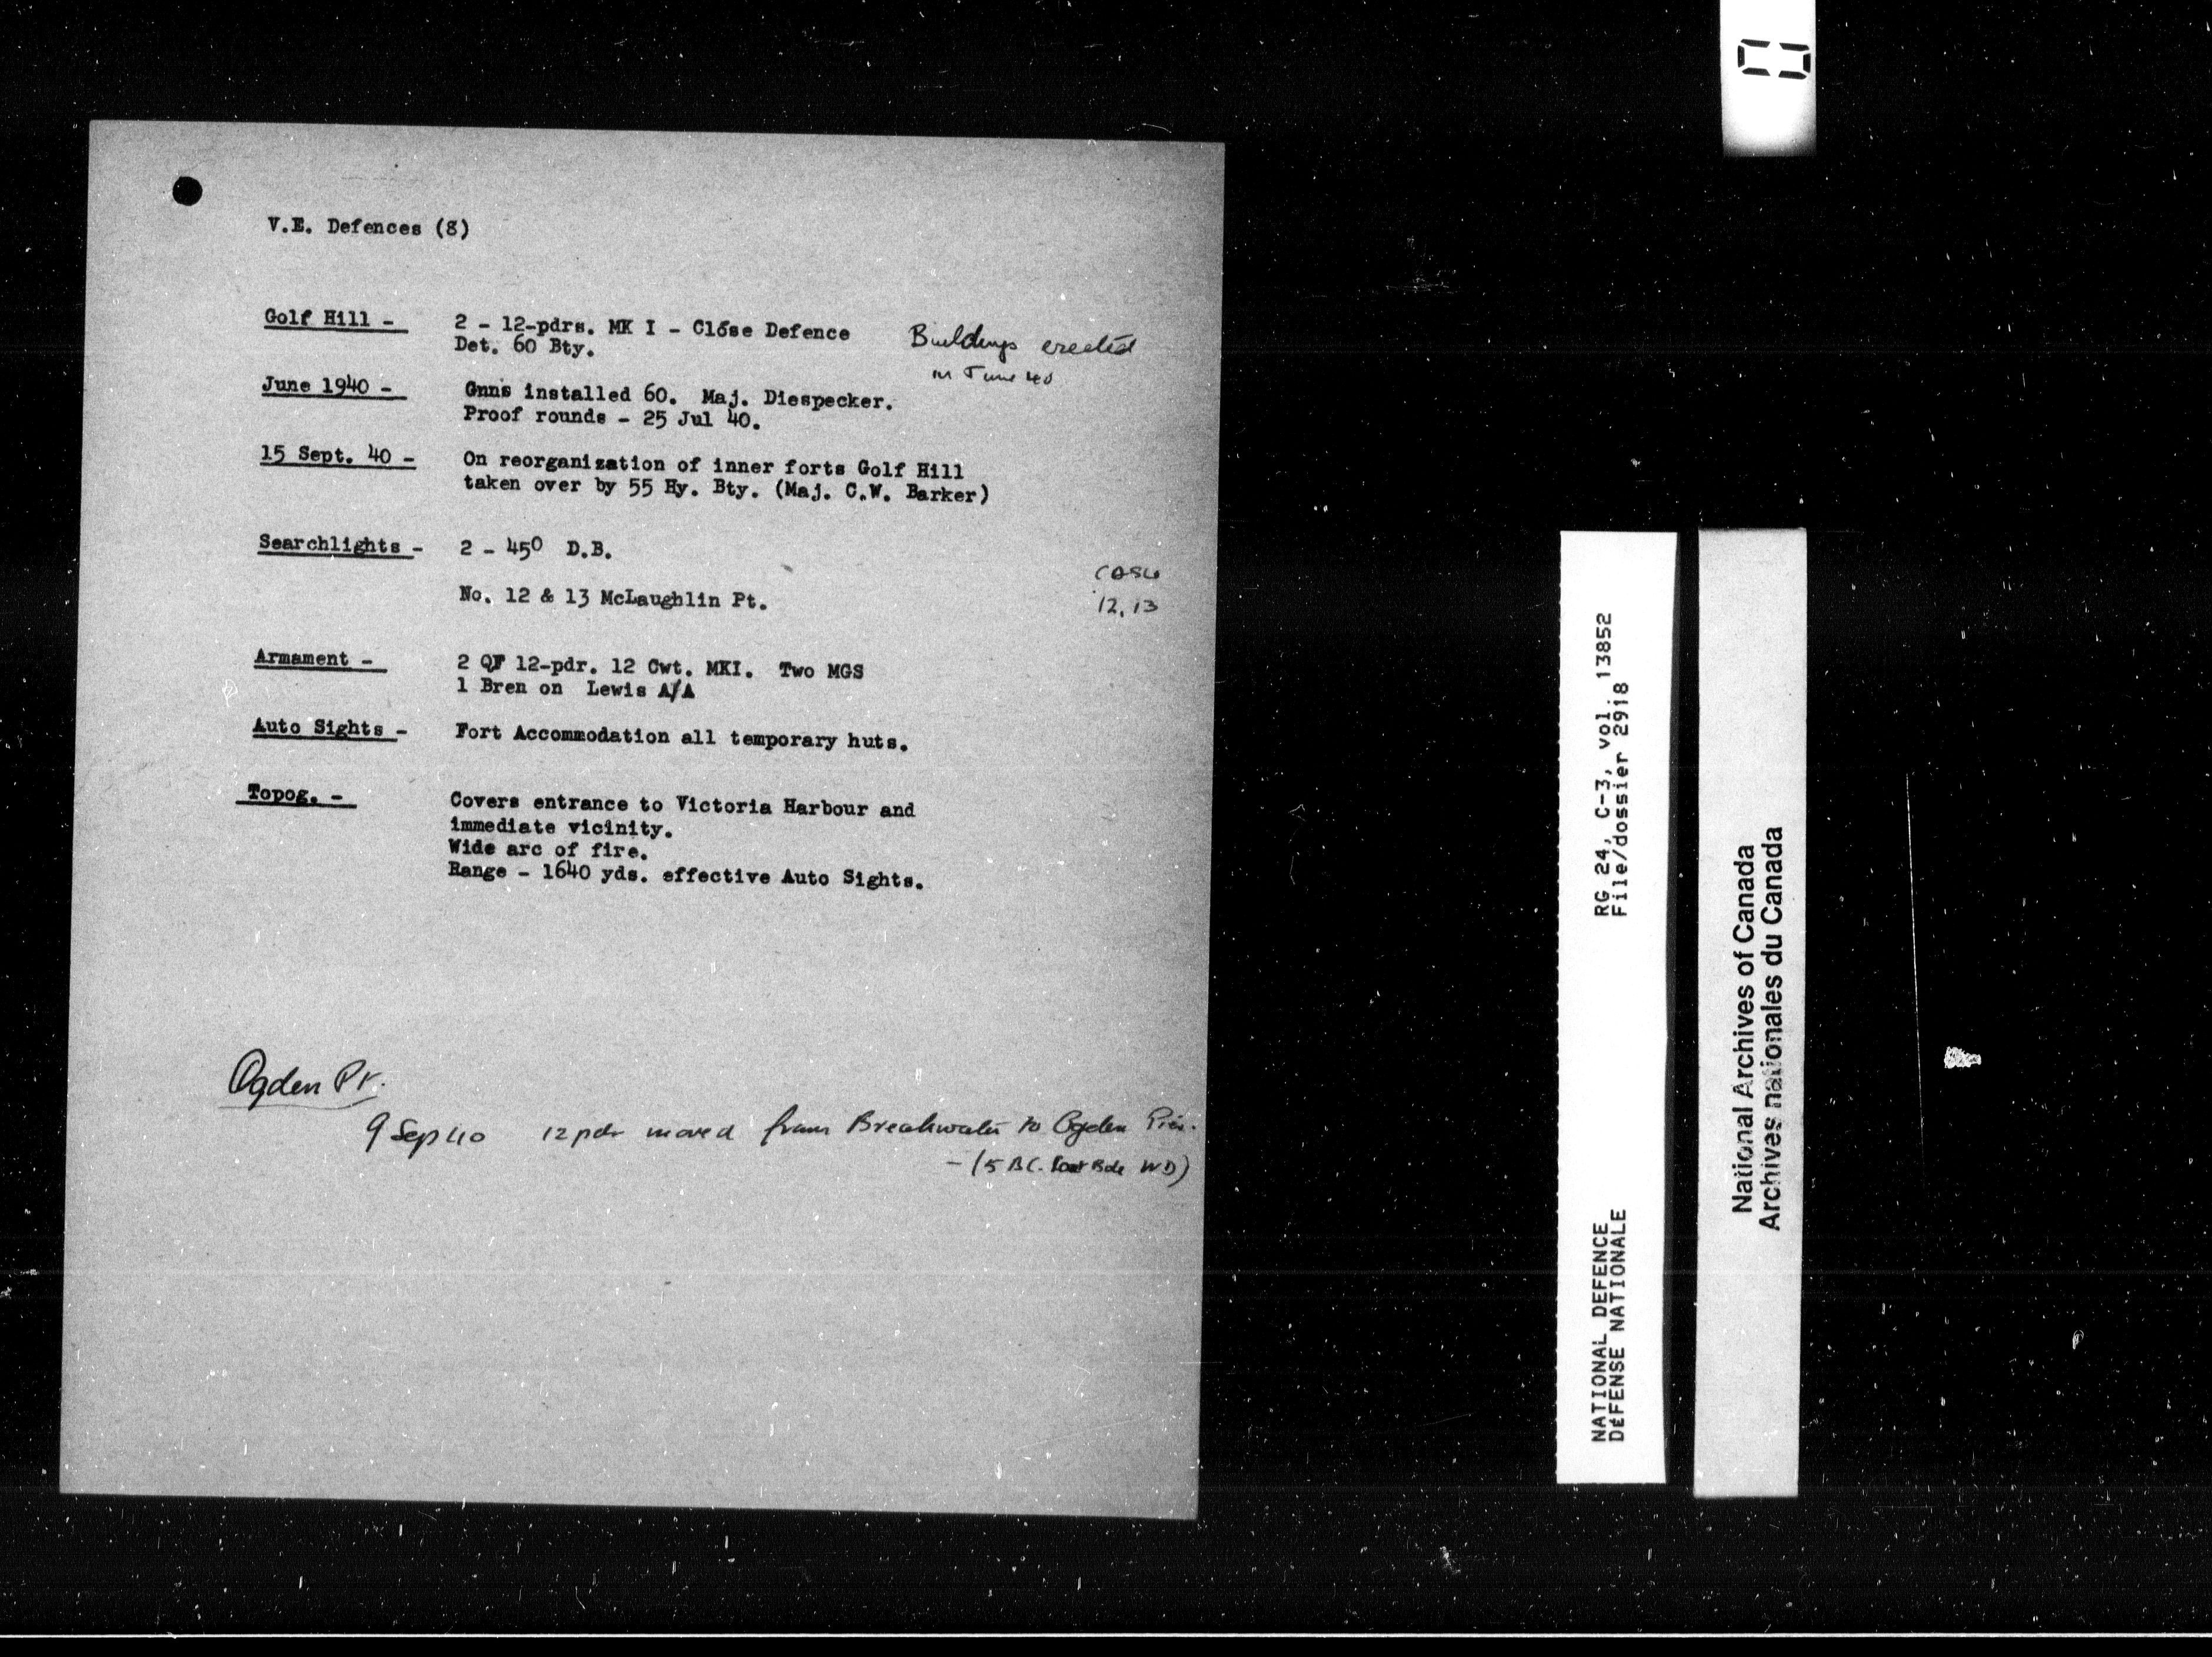 V.E. Defences (8)
Golf Hill - 2 - 12-pdrs. MK I - Close Defence
Det. 60 Bty.
Buildings erected
in June 40
June 1940 - Gnns installed 60. Maj. Diespecker.
Proof rounds - 25 Jul 40.
15 Sept. 40 - On reorganization of inner forts Golf Hill
taken over by 55 Hy. Bty. (Maj. C.W. Barker)
Searchlights - 2 - 45° D.B.
No. 12 & 13 McLaughlin Pt.
12, 13
Armament - 2 QF 12-pdr. 12 Cwt. MKI. Two MGS
1 Bren on Lewis A/A
Auto Sights - Fort Accommodation all temporary huts.
Topog. - Covers entrance to Victoria Harbour and
immediate vicinity.
Wide arc of fire.
Range - 1640 yds. effective Auto Sights.
Ogden Pt.
9 Sep 40 12 pdr moved from Breakwater to Ogden Pier.
- (5 BC. Coast Bde WD)
NATIONAL DEFENCE RG 24, C-3, vol. 13852
DÉFENSE NATIONALE File/dossier 2918
National Archives of Canada
Archives nationales du Canada